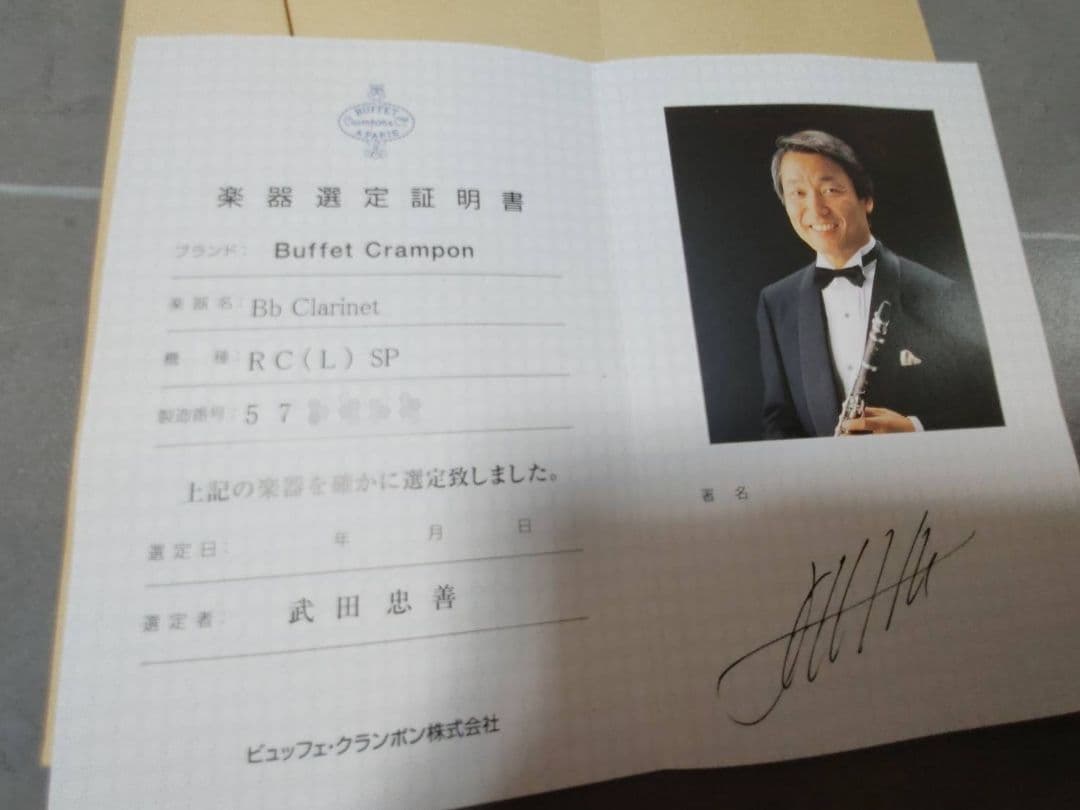 BUFFET
Crampon & Cie
A PARIS
楽器選定証明書
ブランド: Buffet Crampon
楽器名: Bb Clarinet
機種: RC(L) SP
製造番号: 57
上記の楽器を確かに選定致しました。
選定日: 年 月 日
選定者: 武田忠善
ビュッフェ・クランポン株式会社
署名